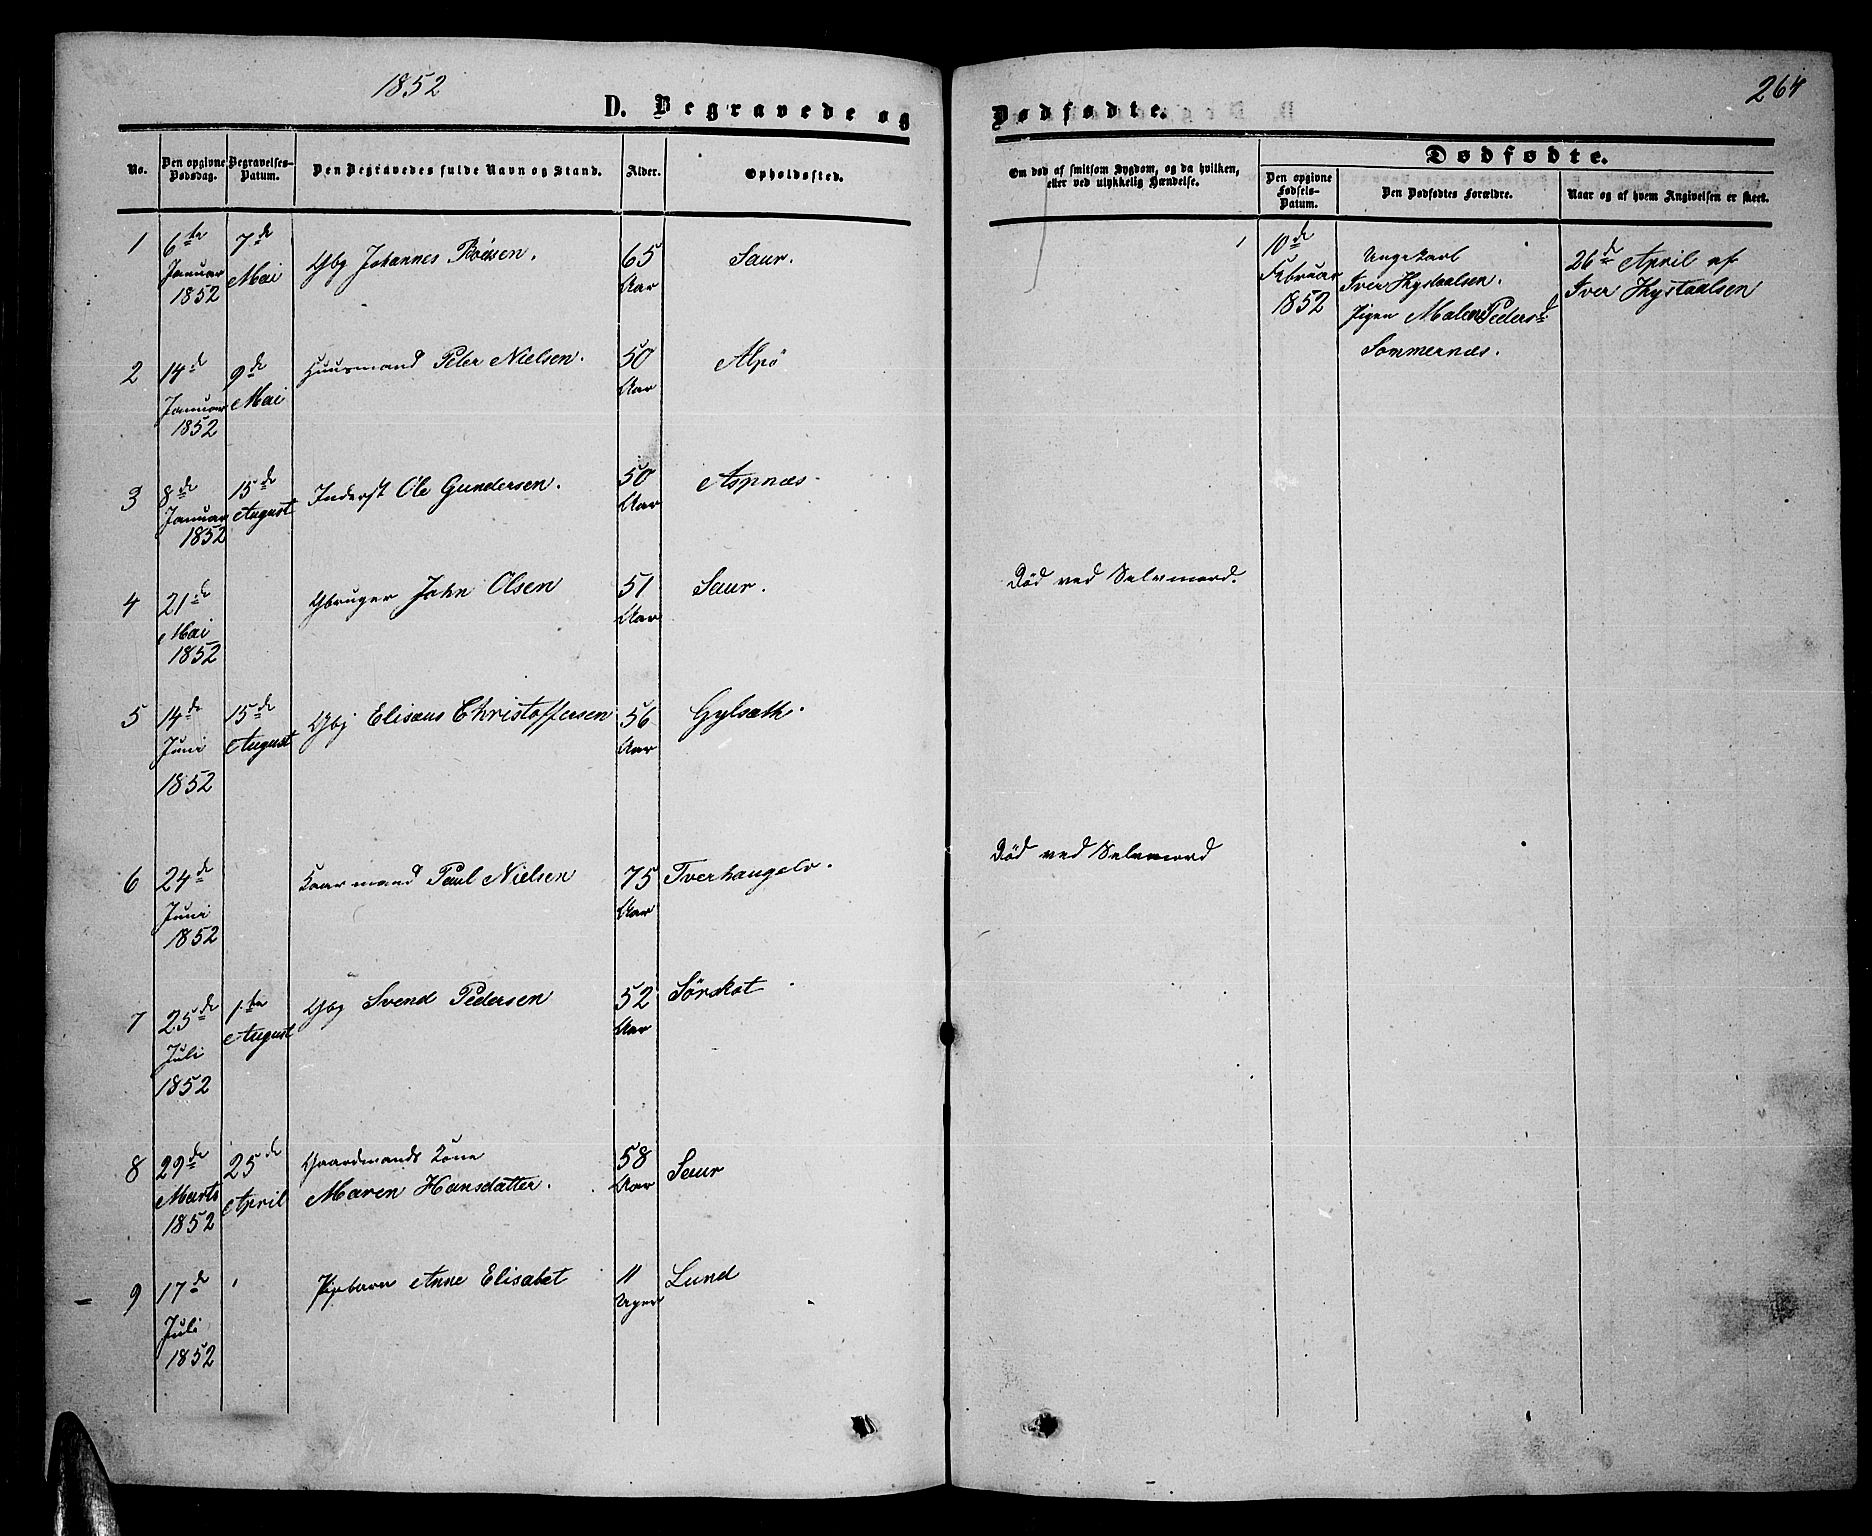 1852
D. Begravede og
Dødfødte.
264
No.
Den opgivne Dødsdag.
Begravelses-Datum.
Den Begravedes fulde Navn og Stand.
Alder.
Opholdssted.
Om død af smitsom Sygdom, og da hvilken,
eller ved ulykkelig Hændelse.
Dødfødte.
Den opgivne
Fødsels-
Datum.
Den Dødfødtes Forældre.
Naar og af hvem Angivelsen er skeet.
1
6te
Januar
1852
7de
Mai
Gbg Johannes
65
Aar
Saur.
2
14de
Januar
1852
9de
Mai
Huusmand Peter Nielsen.
50
Aar
Alpö
3
8de
Januar
1852
15de
August
Inderst Ole Gundersen.
50
Aar
Aspnæs.
4
21de
Mai
1852
Gbruger John Olsen
51
Aar
Saur.
Död ved Selvmord.
5
14de
Juni
1852
15de
August
Gbg Elisæus Christoffersen
56
Aar
Gylsæth.
6
24de
Juni
1852
Kaarmand Paul Nielsen
75
Aar
Död ved Selvmord
7
25de
Juli
1852
1te
August
Gbg Svend Pedersen
52
Aar
Sörskot
8
29de
Marts
1852
25de
April
Gaardmands Kone
Maren Hansdatter.
58
Aar
Saur
9
17de
Juli
1852
Pigebarn Anne Elisabet
11
Uger
Lund
1
10de
Februar
1852
Ungekarl
Iver
Pigen Malene Pedersd.
Sommernæs.
26de April af
Iver